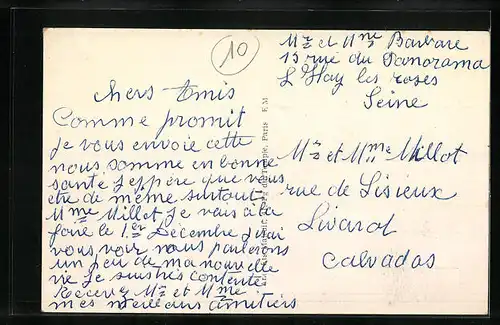 10
Mr et Mme Barbare
15 rue du Panorama
L Hay les roses
Seine
chers Amis
Comme promit
je vous envoie cette
nous somme en bonne
santé j'eppère que vous
etre de même surtout
Mme Millot je vais à la
foire le 1er Décembre j'irai
vous voir nous parlerons
un peu de ma nouvelle
vie je suis très contente
Recevez Mr et Mme
mes meilleurs amitiers
Mr et Mme Millot
rue de Lisieux
Livarot
Calvados
Paris E M